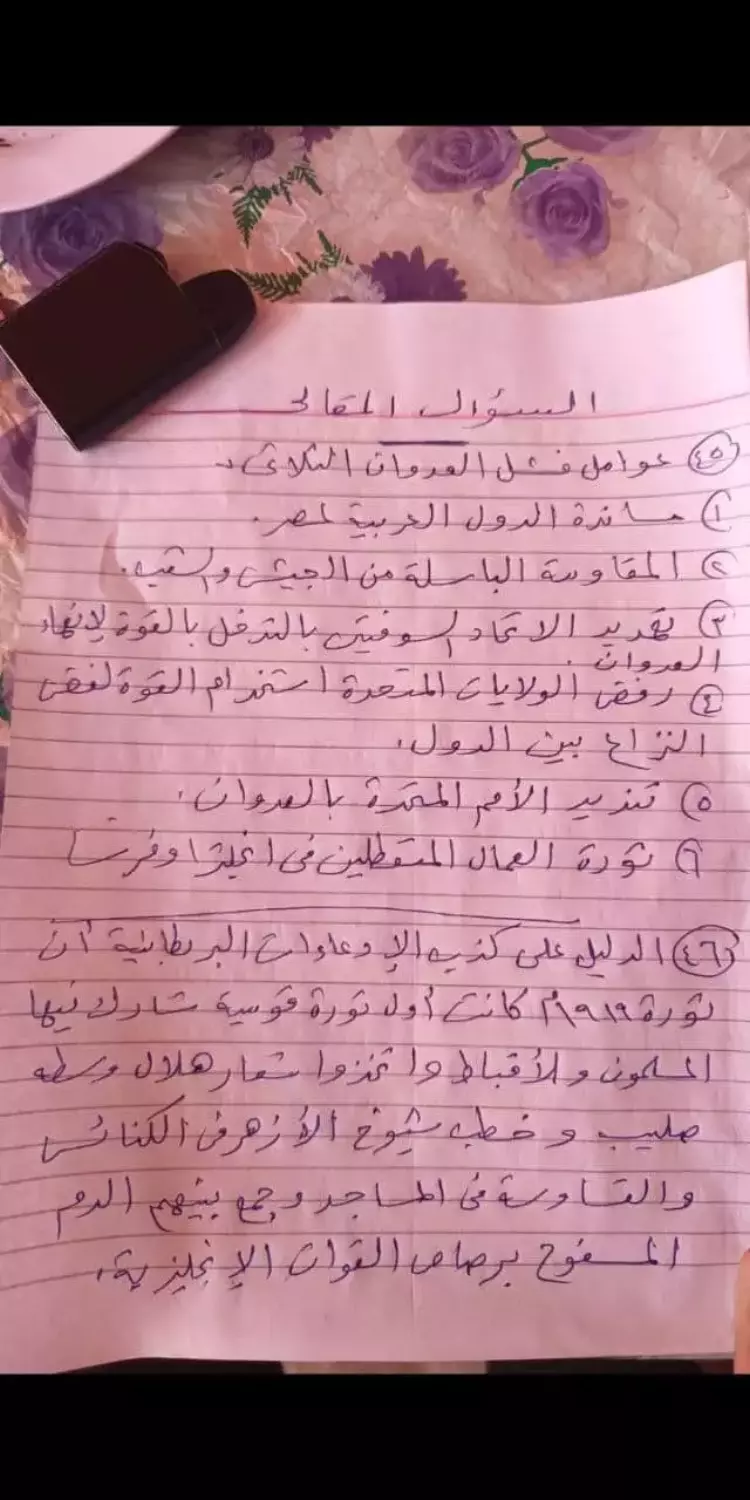 السؤال المقالى
٤٥ عوامل فشل العدوان الثلاثى :-
١ مساندة الدول العربية لمصر.
٢ المقاومة الباسلة من الجيش والشعب.
٣ تهديد الاتحاد السوفيتى بالتدخل بالقوة لإنهاء
العدوان.
٤ رفض الولايات المتحدة استخدام القوة لفض
النزاع بين الدول.
٥ تنديد الأمم المتحدة بالعدوان.
٦ ثورة العمال المتعطلين فى انجلترا وفرنسا
٤٦ الدليل على كذب الإدعاءات البريطانية أن
ثورة ١٩١٩م كانت أول ثورة قومية شارك فيها
المسلمون والأقباط واتخذوا شعار هلال وسطه
صليب وخطب شيوخ الأزهر فى الكنائس
والقساوسة فى المساجد وجمع بينهم الدم
المسفوح برصاص القوات الإنجليزية.